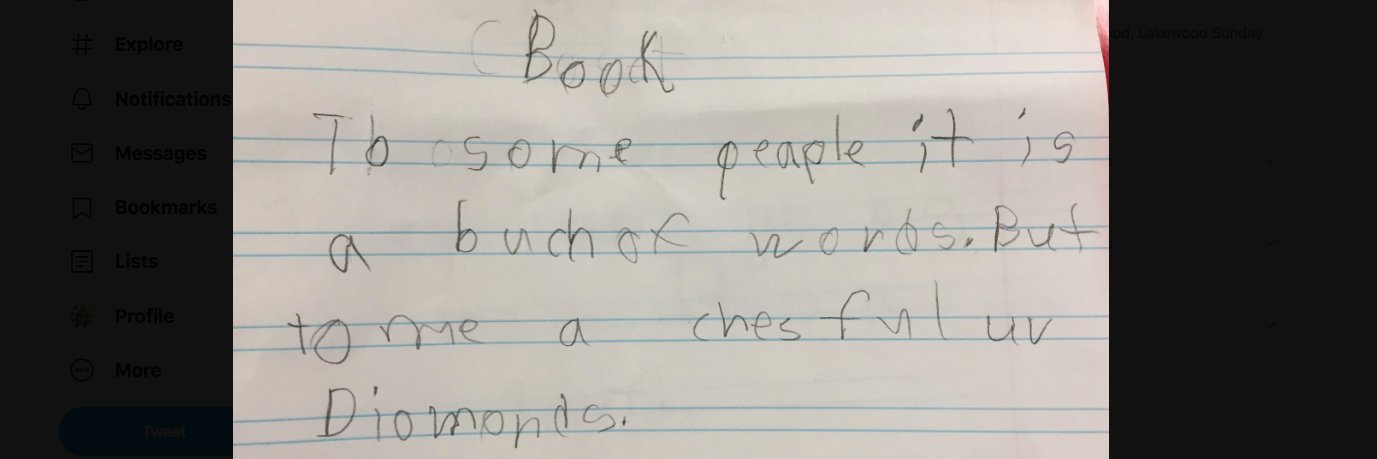 Explore
Notifications
Messages
Bookmarks
Lists
Profile
More
Tweet
Book
To some peaple it is
a buch of words. But
to me a ches ful uv
Diomonds.
Lakewood Sunday